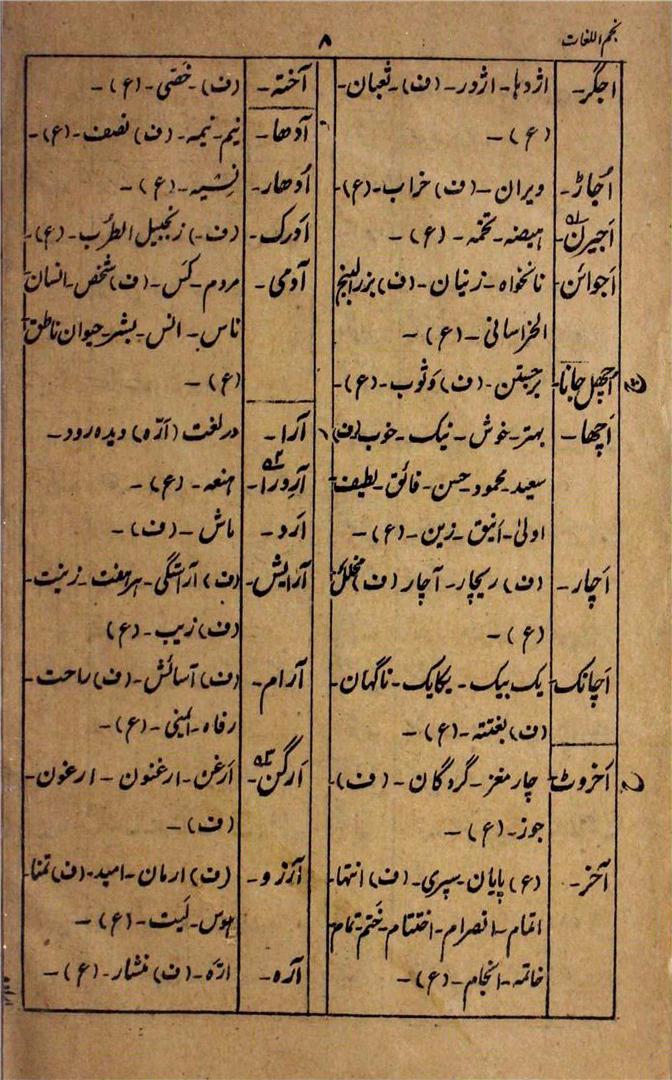 نجم اللغات
۸
اجگر- اژدہا- اژدر- (ف)- ثعبان-
(ع)-
اُجاڑ- ویران- (ف) خراب- (ع)-
اجیرن- ہیضہ- تخمہ- (ع)-
اجوائن- نانخواہ- زنیان- (ف) بزرالبنج
الخراسانی- (ع)-
اچھل جانا- برجستن- (ف) وثوب- (ع)-
اچھا- بہتر- خوش- نیک- خوب (ف)
سعید- محمود- حسن- فائق- لطیف
اولیٰ- انیق- زین- (ع)-
اچار- (ف) ریچار- آچار (ف) مخلل
(ع)-
اچانک- یک بیک- یکایک- ناگہان-
(ف) بغتتہ- (ع)-
اخروٹ- چارمغز- گردگان- (ف)-
جوز- (ع)-
آخر- (ع) پایان- سپری- (ف) انتہا-
اتمام- انصرام- اختتام- ختم- تمام
خاتمہ- انجام- (ع)-
آختہ- (ف)- خصی- (ع)-
آدھا- نیم- نیمہ- (ف) نصف- (ع)-
اُدھار- نسیہ- (ع)-
ادرک- (ف)- زنجبیل الرطب- (ع)-
آدمی- مردم- کس- (ف) شخص- انسان
ناس- انس- بشر- حیوان ناطق
(ع)-
آرا- در لغت (آرّہ) دیدہ رود-
آرورا- ہنعہ- (ع)-
اَرد- ماش- (ف)-
آرایش- (ف) آراستگی- ہرہفت- زینت-
(ف) زیب- (ع)
آرام- (ف) آسائش- (ف) راحت-
رفاہ- (ع)-
ارگن- ارغن- ارغنون- ارغون-
(ف)-
آرزو- (ف) ارمان- امید- (ف) تمنا-
ہوس- لیت- (ع)-
آرہ- ارّہ- (ف) منشار- (ع)-